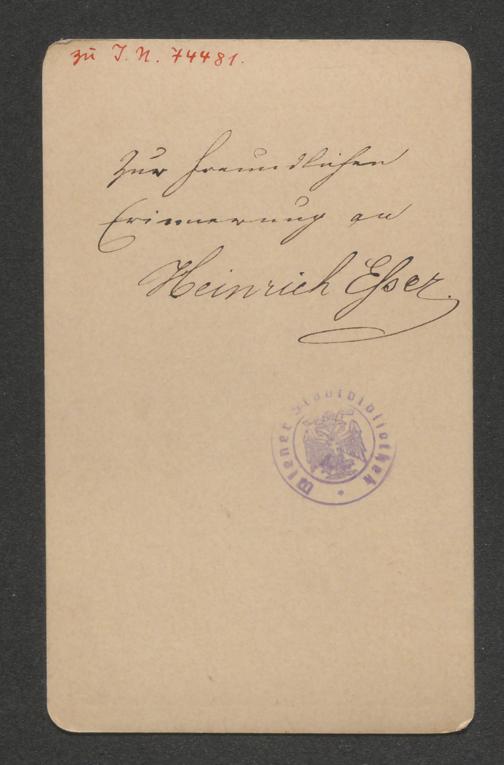 zu I. N. 74481.
Zur freundlichen
Erinnerung an
Heinrich Eßer.
Wiener Stadtbibliothek